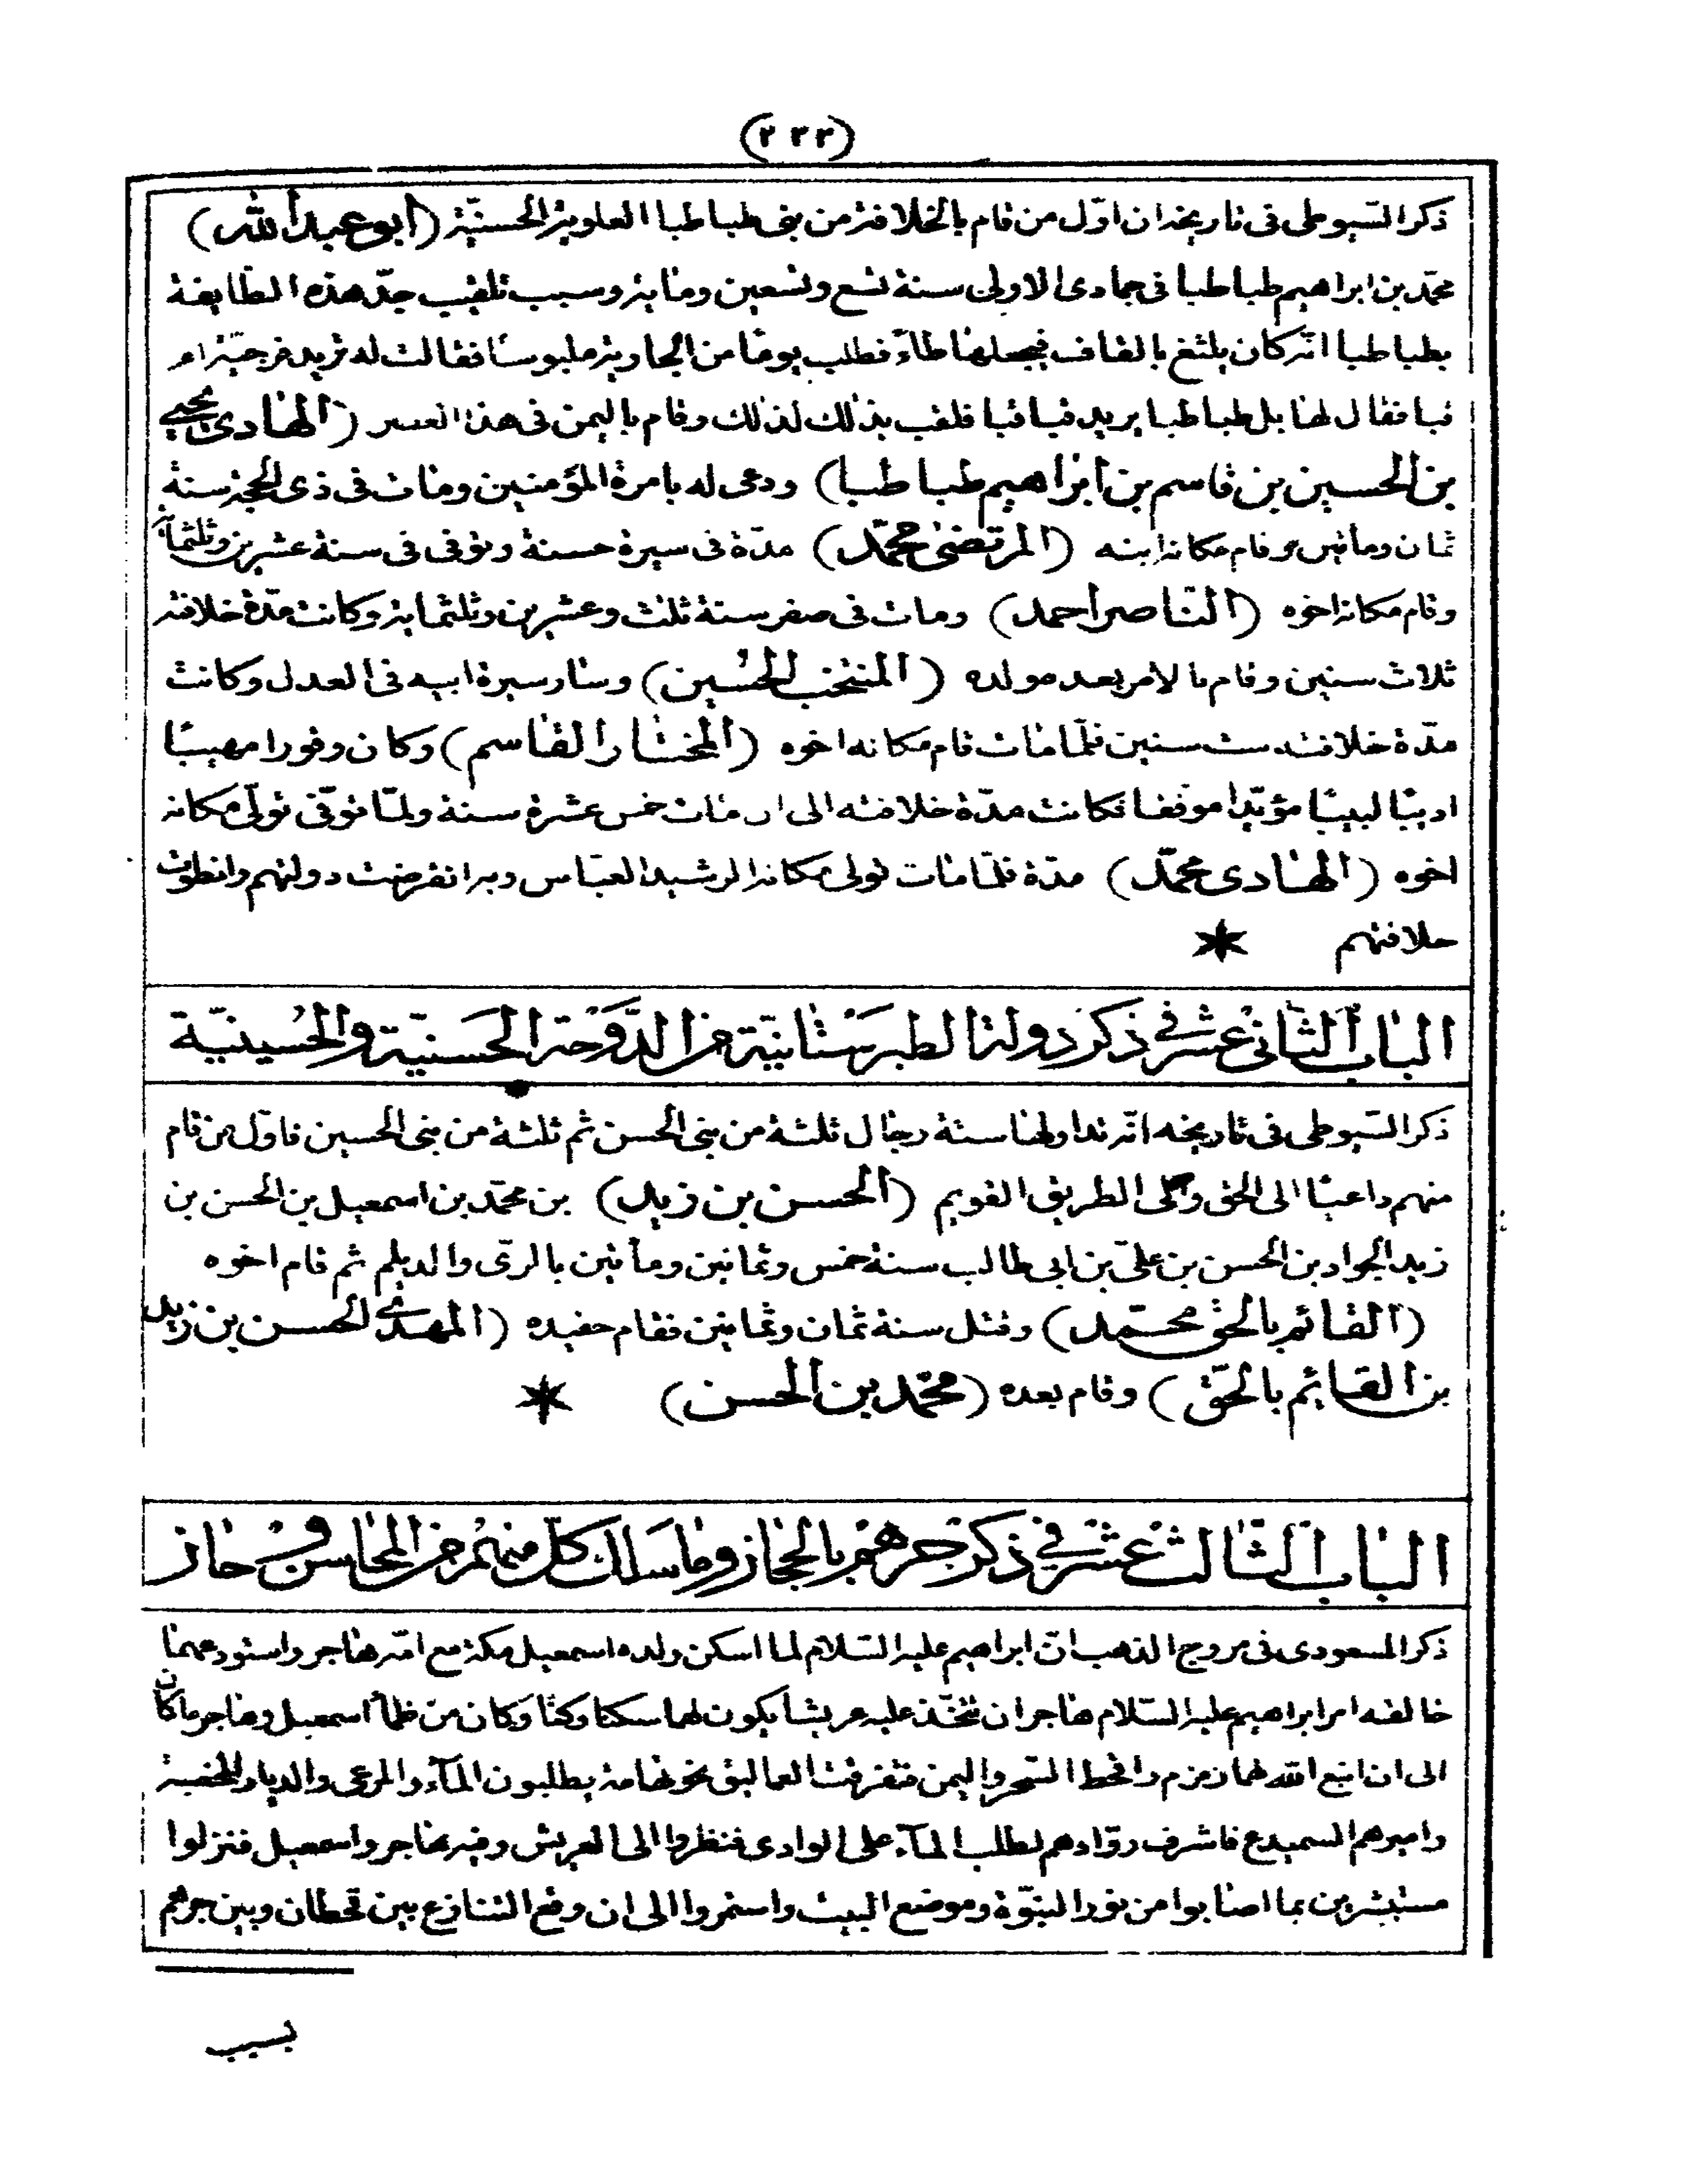 (٢٣٣)
ذكر السيوطى فى تاريخه ان اوّل من قام بالخلافة من بنى طباطبا العلوية الحسنيّة (ابو عبد الله)
محمّد بن ابراهيم طباطبا فى جمادى الاولى سنة تسع وتسعين ومايه وسبب تلقيب جدّ هذه الطايفة
بطباطبا انّه كان يلثغ بالقاف فيجعلها طاءً فطلب يومًا من الجارية ملبوسًا فقالت له تريد فرجيّة ام
قبا فقال لها بل طباطبا يريد قباقبا فلقب بذلك لذلك وقام باليمن فى هذا العصر (الهادى يحيى
بن الحسين بن قاسم بن ابراهيم طباطبا) ودعى له بامرة المؤمنين ومات فى ذى الحجة سنة
ثمان ومأتين وقام مكانه ابنه (المرتضى محمّد) مدّة فى سيرة حسنة وتوفى فى سنة عشرين وثلثمايه
وقام مكانه اخوه (الناصر احمد) ومات فى صفر سنة ثلث وعشرين وثلثمايه وكانت مدّة خلافته
ثلاث سنين وقام بالامر بعده ولده (المنتخب الحُسين) وسار سيرة ابيه فى العدل وكانت
مدّة خلافته ست سنين فلمّا مات قام مكانه اخوه (المختار القاسم) وكان وقورا مهيبًا
اديبًا لبيبًا مؤيّدا موفقا فكانت مدّة خلافته الى ان مات خمس عشرة سنة ولمّا توفّى تولّى مكانه
اخوه (الهادى محمّد) مدّة فلمّا مات تولى مكانه الرشيد العبّاس وبه انقرضت دولتهم وانطوت
خلافتهم
الباب الثانى عشر فى ذكر دولة الطبرستانيّة من الدوحة الحسنيّة والحُسينيّة
ذكر السيوطى فى تاريخه انّه تداولها ستة رجال ثلثة من بنى الحسن ثم ثلثة من بنى الحسين فاوّل من قام
منهم داعيًا الى الحق والى الطريق القويم (الحسن بن زيد) بن محمّد بن اسمعيل بن الحسن بن
زيد الجواد بن الحسن بن علىّ بن ابى طالب سنة خمس وثمانين ومأتين بالرّى والديلم ثم قام اخوه
(القائم بالحق محمّد) وقتل سنة ثمان وثمانين فقام حفيده (المهدى الحسن بن زيد
بن القايم بالحقّ) وقام بعده (محمّد بن الحسن)
الباب الثالث عشر فى ذكر جرهم بالحجاز وما سلك كل منهم من المحاسن وحاز
ذكر المسعودى فى مروج الذهب انّ ابراهيم عليه السّلام لما اسكن ولده اسمعيل مكة مع امّه هاجر واستودعهما
خالقه امر ابراهيم عليه السّلام هاجر ان تتّخذ عليه عريشا يكون لهما سكنا وكنّا وكان من ظمأ اسمعيل وهاجر ما كان
الى ان انبع الله لهما زمزم واقحط الشحر واليمن فتفرقت العماليق نحو تهامة يطلبون المآء والمرعى والديار الخصبة
واميرهم السميدع فاشرف روّادهم لطلب المآء على الوادى فنظروا الى العريش وفيه هاجر واسمعيل فنزلوا
مستبشرين بما اصابوا من نور النبوّة وموضع البيت واستمروا الى ان وقع التنازع بين قحطان وبين جرهم
بسبب